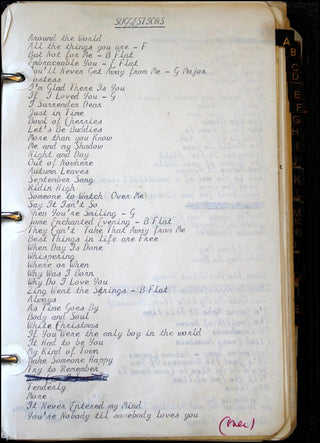 SUGGESTIONS
Around the World
All the things you are - F
But Not for Me - B Flat
Embraceable You - E Flat
You'll Never Get Away from Me - G Major
I'm Glad There Is You
If I Loved You - G
I Surrender Dear
Just in Time
Bowl of Cherries
Let's Be Buddies
More than you Know
Me and my Shadow
Night and Day
Out of Nowhere
Autumn Leaves
September Song
Ridin High
Someone to Watch Over Me
Say It Isn't So
When You're Smiling - G
Some Enchanted Evening - B Flat
They Can't Take That Away from Me
Best Things in Life are Free
When Day Is Done
Whispering
Where or When
Why Was I Born
Why Do I Love You
Zing Went the Strings - B Flat
Always
As Time Goes By
Body and Soul
White Christmas
If You Were the only boy in the world
It Had to be You
My Kind of Town
Make Someone Happy
Try to Remember
Tenderly
More
It Never Entered my Mind
You're Nobody til somebody loves you
(over)
A
B
C
D
E
F
G
H
I
J
K
L
M
N